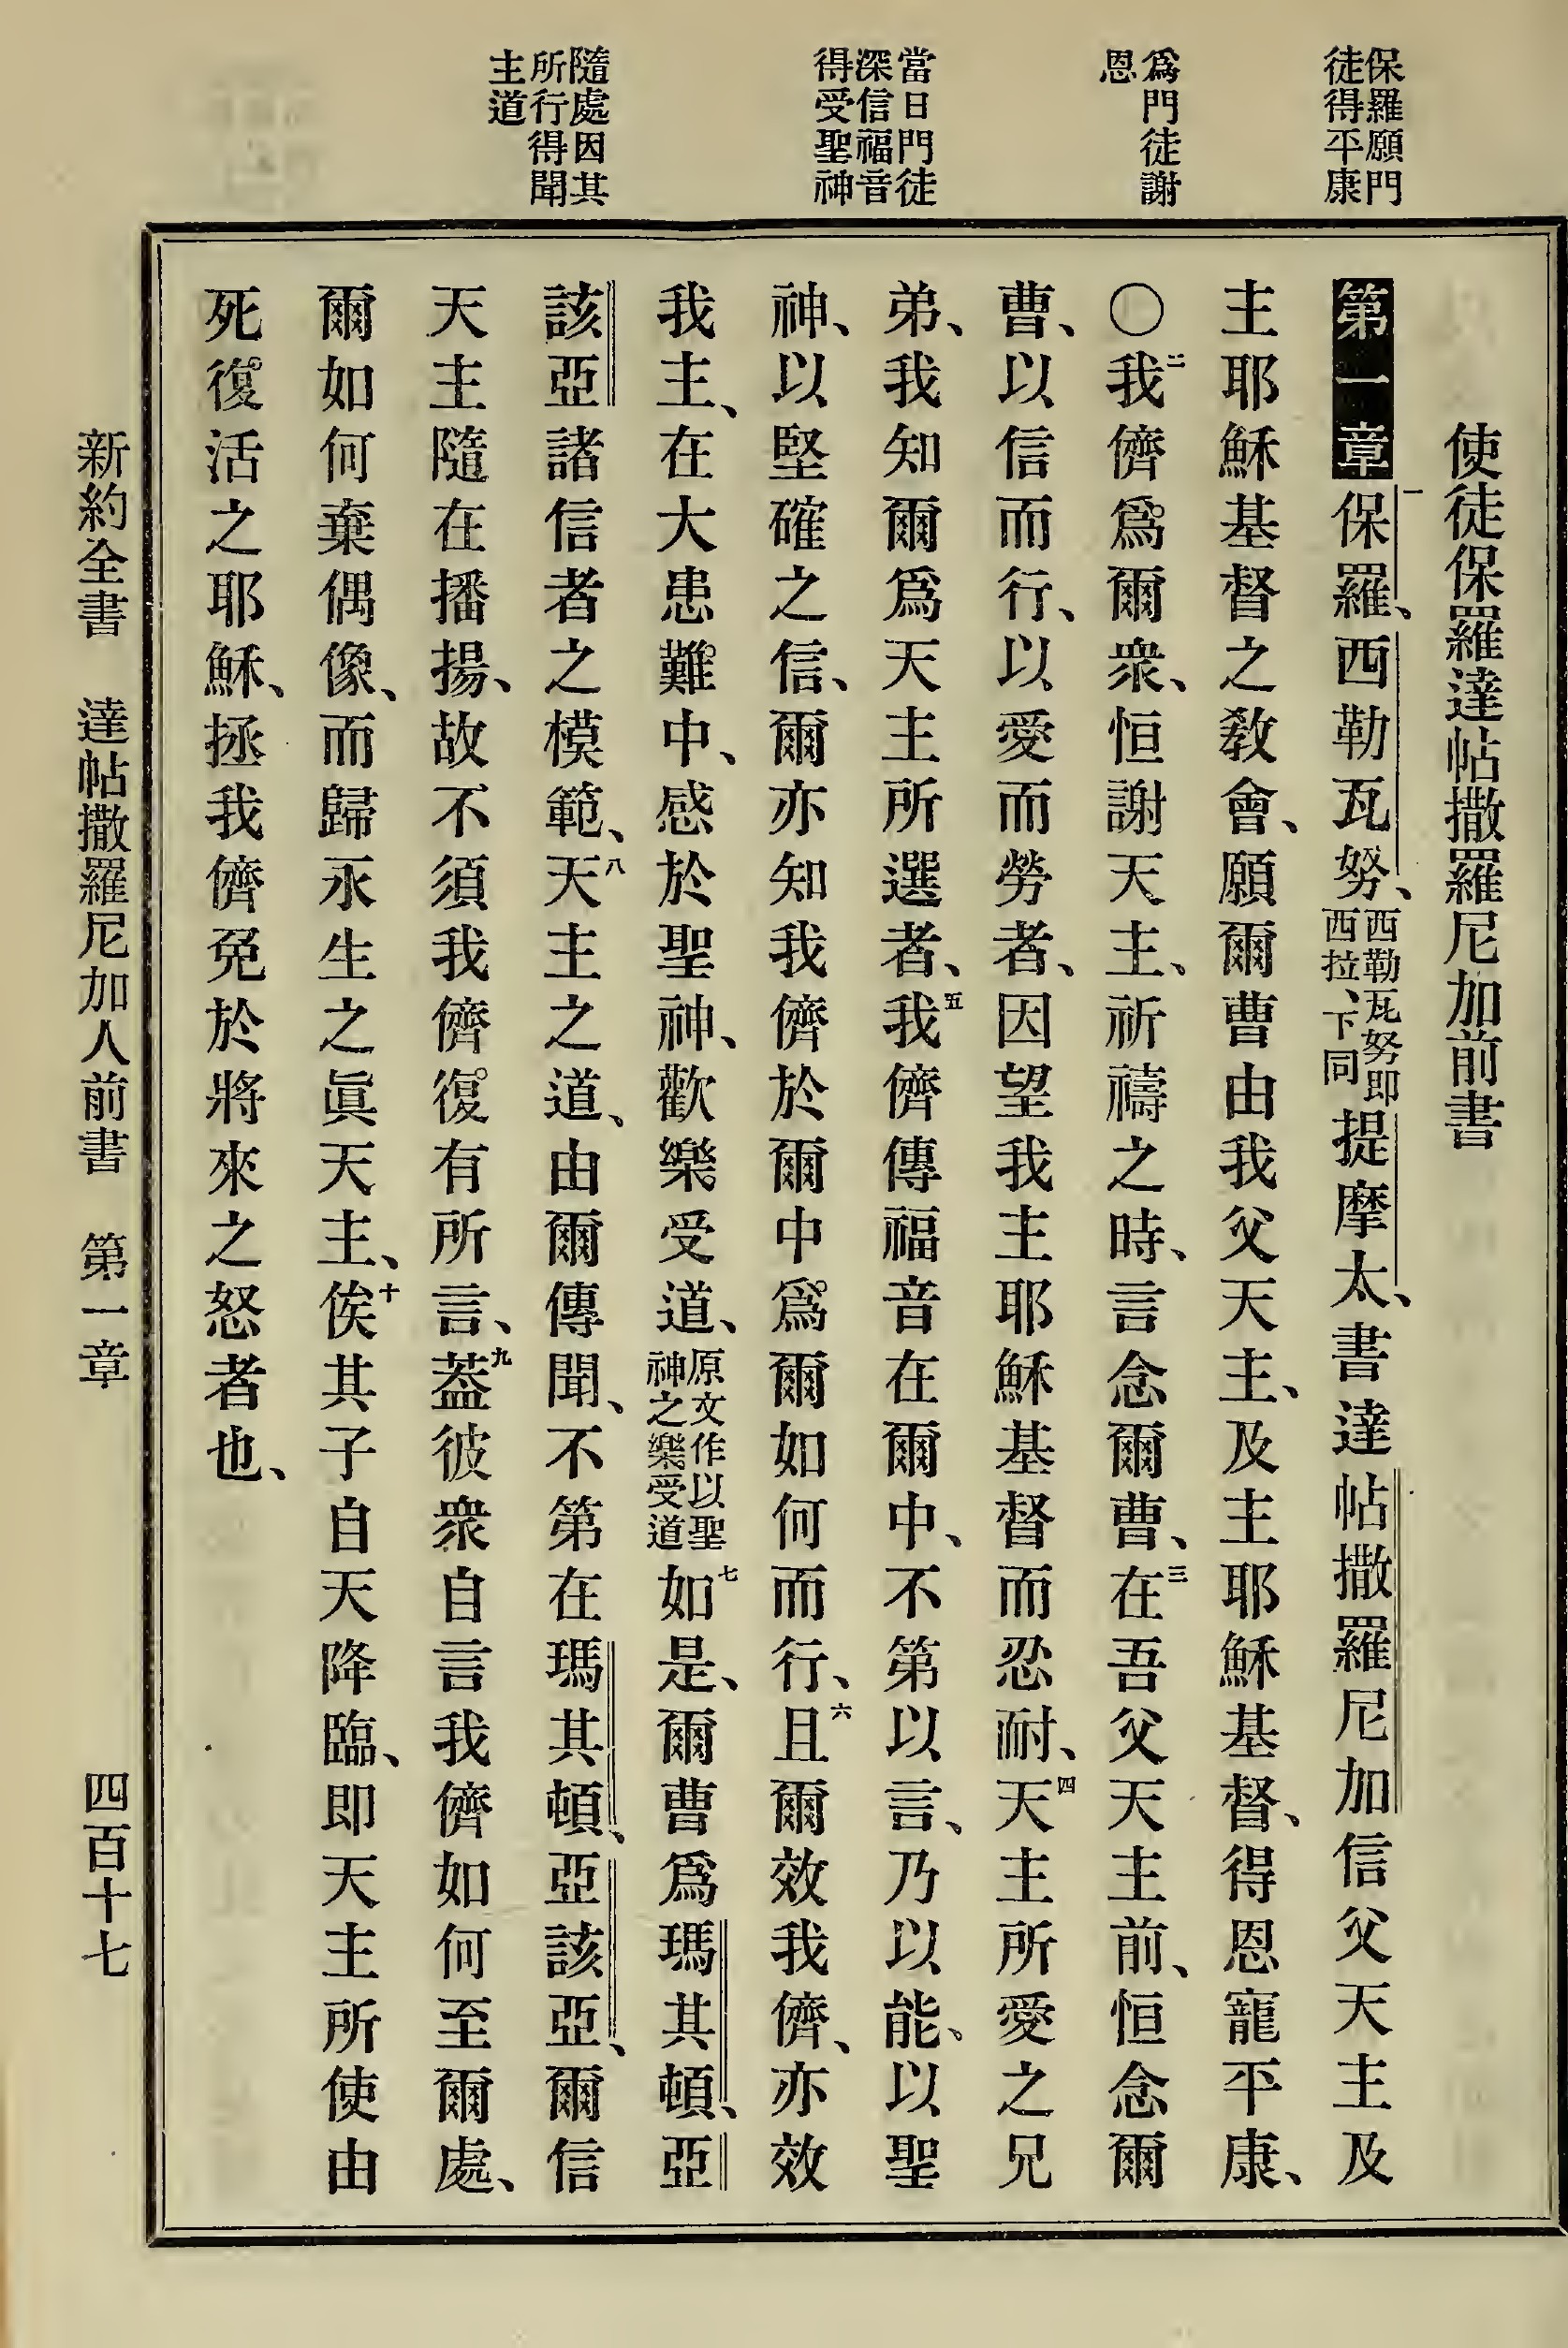 保羅願門
徒得平康
爲門徒謝
恩
當日門徒
深信福音
得受聖神
隨處因其
所行得聞
主道
使徒保羅達帖撒羅尼加前書
第一章一保羅、西勒瓦努、西勒瓦努即西拉、下同提摩太、書達帖撒羅尼加信父天主及
主耶穌基督之敎會、願爾曹由我父天主、及主耶穌基督、得恩寵平康、
〇二我儕爲爾衆、恒謝天主、祈禱之時、言念爾曹、三在吾父天主前、恒念爾
曹、以信而行、以愛而勞者、因望我主耶穌基督而忍耐、四天主所愛之兄
弟、我知爾爲天主所選者、五我儕傳福音在爾中、不第以言、乃以能、以聖
神、以堅確之信、爾亦知我儕於爾中爲爾如何而行、六且爾效我儕、亦效
我主、在大患難中、感於聖神、歡樂受道、原文作以聖神之樂受道七如是、爾曹爲瑪其頓、亞
該亞諸信者之模範、八天主之道、由爾傳聞、不第在瑪其頓、亞該亞、爾信
天主隨在播揚、故不須我儕復有所言、九蓋彼衆自言我儕如何至爾處、
爾如何棄偶像、而歸永生之眞天主、十俟其子自天降臨、即天主所使由
死復活之耶穌、拯我儕免於將來之怒者也、
新約全書 達帖撒羅尼加人前書 第一章 四百十七